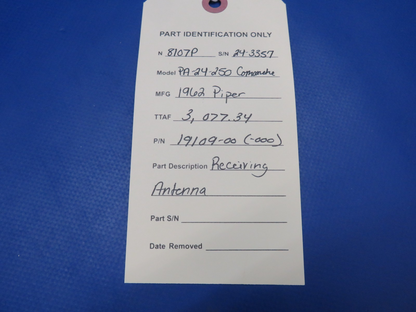 PART IDENTIFICATION ONLY
N 8107P S/N 24-3357
Model PA-24-250 Comanche
MFG 1962 Piper
TTAF 3,077.34
P/N 19109-00 (-000)
Part Description Receiving
Antenna
Part S/N
Date Removed